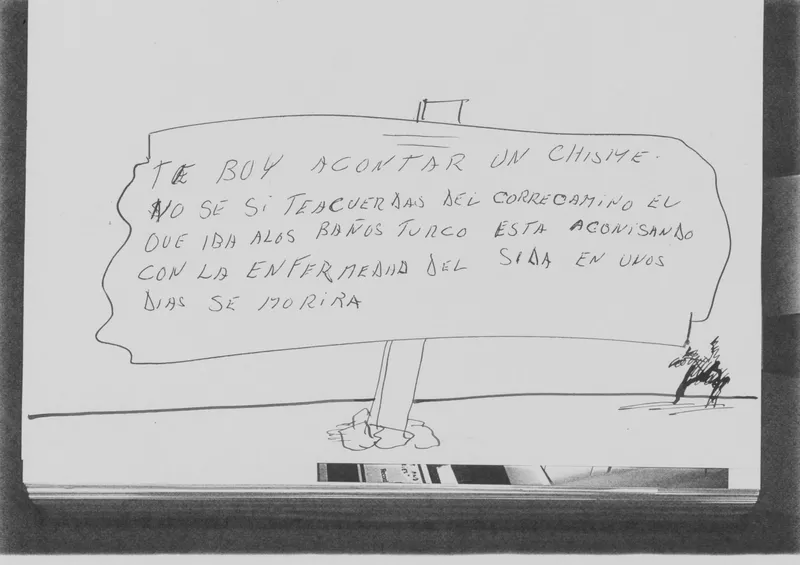 TE BOY ACONTAR UN CHISME.
NO SE SI TEACUERDAS DEL CORRECAMINO EL
QUE IBA ALOS BAÑOS TURCO ESTA AGONISANDO
CON LA ENFERMEDAD DEL SIDA EN UNOS
DIAS SE MORIRA